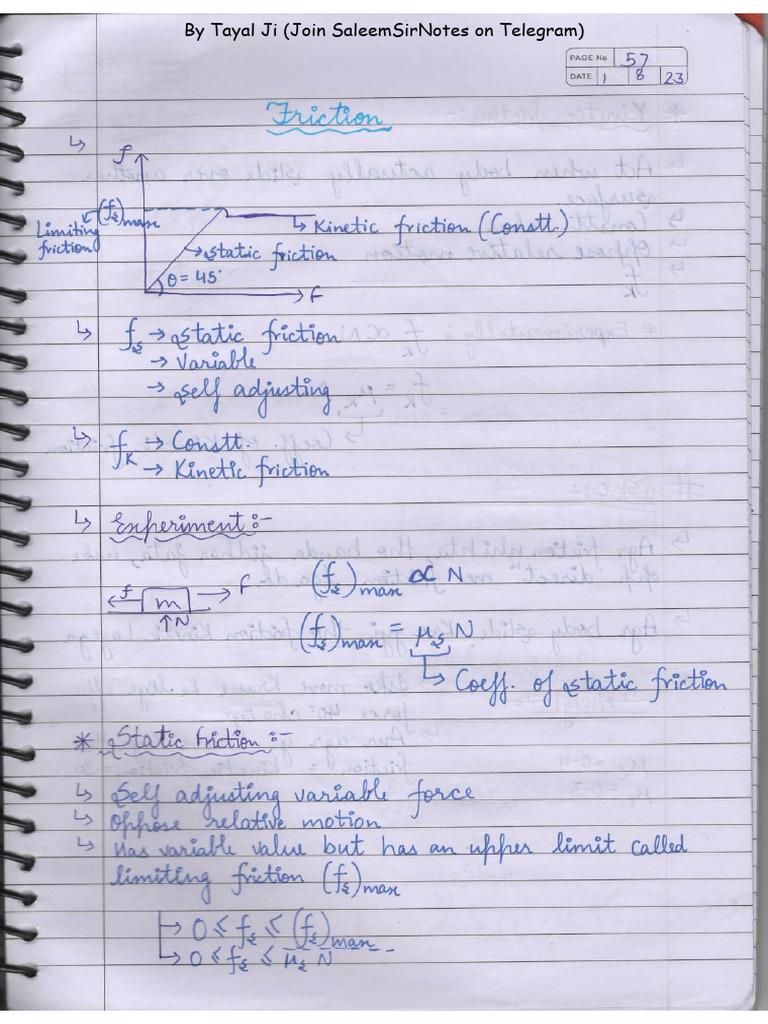 By Tayal Ji (Join SaleemSirNotes on Telegram)
PAGE No 57
DATE 1 8 23
Friction
↳ f
(fs)max
Limiting friction
↳ Kinetic friction (Constt.)
→ static friction
θ = 45°
F
↳ fs → static friction
→ Variable
→ self adjusting
↳ fK → Constt.
→ Kinetic friction
↳ Experiment :-
f m F
↑N
(fs)max ∝ N
(fs)max = μs N
↳ Coeff. of static friction
* Static friction :-
↳ Self adjusting variable force
↳ Oppose relative motion
↳ Has variable value but has an upper limit called
limiting friction (fs)max
→ 0 ≤ fs ≤ (fs)max
↳ 0 ≤ fs ≤ μs N